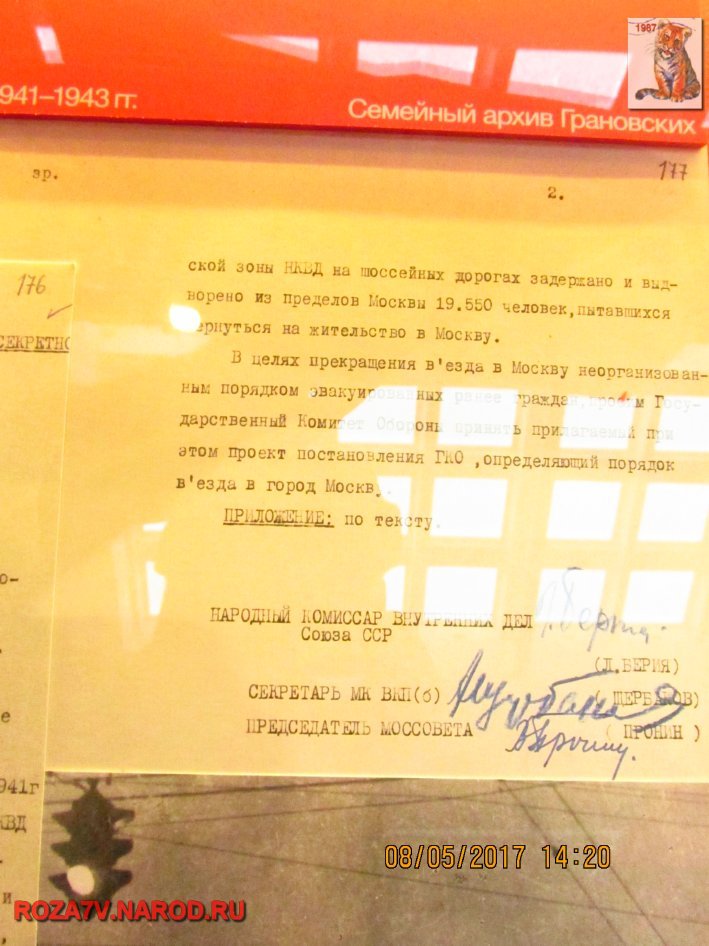 1987
941–1943 гг.
Семейный архив Грановских
177
эр.
2.
176
СЕКРЕТНО
ской зоны НКВД на шоссейных дорогах задержано и выд-
ворено из пределов Москвы 19.550 человек,пытавшихся
вернуться на жительство в Москву.
В целях прекращения в'езда в Москву неорганизован-
ным порядком эвакуированных ранее граждан,просим Госу-
дарственный Комитет Обороны принять прилагаемый при
этом проект постановления ГКО ,определяющий порядок
в'езда в город Москву.
ПРИЛОЖЕНИЕ: по тексту.
о-
НАРОДНЫЙ КОМИССАР ВНУТРЕННИХ ДЕЛ
Союза ССР
(Л.БЕРИЯ)
СЕКРЕТАРЬ МК ВКП(б)
( ЩЕРБАКОВ)
ПРЕДСЕДАТЕЛЬ МОССОВЕТА
( ПРОНИН )
е
941г
КВД
и
08/05/2017 14:20
ROZA7V.NAROD.RU